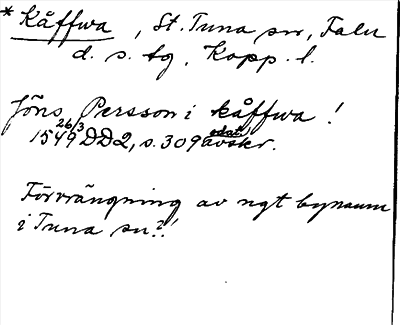 * Kåffwa, St. Tuna sn, Falu
d. s. tg, Kopp. l.
Jöns Persson i kåffwa !
1549 26/3 DD2, s. 309 odat. avskr.
Förvrängning av ngt bynamn
i Tuna sn?!